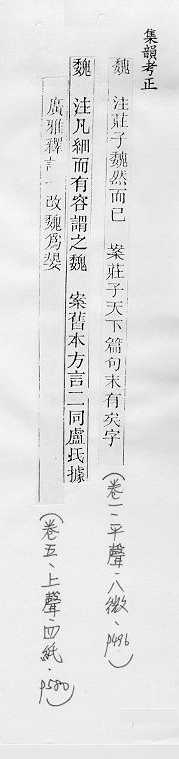 集韻考正
魏 注莊子魏然而已 案莊子天下篇句末有矣字
(卷一、平聲、八微、p496)
魏 注凡細而有容謂之魏 案舊本方言二同盧氏據
廣雅釋言一改魏爲嫢
(卷五、上聲、四紙、p580)